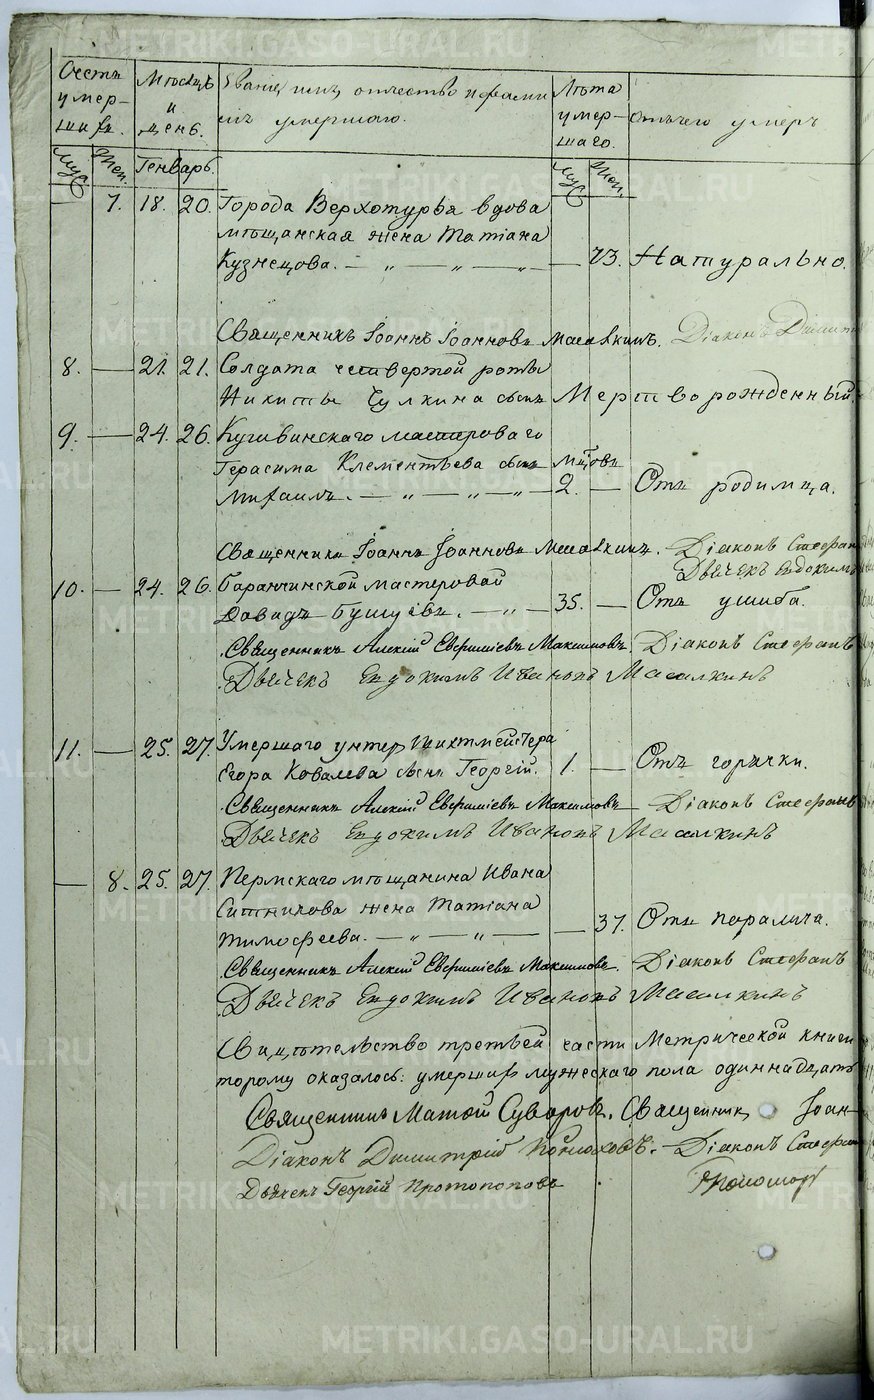 METRIKI.GASO-URAL.RU
Счетъ умер-шихъ.
Мѣсяцъ и день.
Званіе, имя, отчество и фамилія умершаго.
Лѣта умер-шаго.
Отъ чего умеръ
Муж. Жен. Генварь. Муж. Жен.
— 7. 18. 20. Города Верхотурья вдова
мѣщанская жена Татіана
Кузнецова. — „ — „ — „ — 73. Натурально.
Священникъ Іоаннъ Іоанновъ Масалкинъ. Діаконъ Димит
8. — 21. 21. Солдата четвертой роты
Никиты Чулкина сынъ Мертворожденный.
9. — 24. 26. Кушвинскаго мастероваго
Герасима Клементьева сынъ Мцовъ
Михаилъ. — „ — „ — „ — 2. — Отъ родимца.
Священникъ Іоаннъ Іоанновъ Масалкинъ. Діаконъ Стефан
Дьячекъ Евдокимъ
10. — 24. 26. Баранчинской мастеровой
Давидъ Бушуевъ. — „ — 35. — Отъ ушиба.
Священникъ Алексій Евфиміевъ Максимовъ. Діаконъ Стефанъ
Дьячекъ Евдокимъ Ивановъ Масалкинъ
11. — 25. 27. Умершаго унтер шихтмейстера
Егора Ковалева сынъ Георгій. 1. — Отъ горячки.
Священникъ Алексій Евфиміевъ Максимовъ Діаконъ Стефанъ
Дьячекъ Евдокимъ Ивановъ Масалкинъ
— 8. 25. 27. Пермскаго мѣщанина Ивана
Ситникова жена Татіана
Тимофеева. — „ — „ — — 37. Отъ паралича.
Священникъ Алексій Евфиміевъ Максимовъ. Діаконъ Стефанъ
Дьячекъ Евдокимъ Ивановъ Масалкинъ
Свидѣтельство третьей части Метрической книги
торому оказалось: умершихъ мужескаго пола одиннадцать
Священникъ Матѳій Суворовъ. Священникъ Іоан-
Діаконъ Димитрій Конюховъ. — Діаконъ Стефан
Дьячекъ Георгій Протопоповъ Пономарь